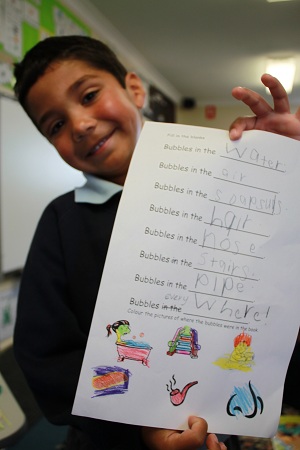 Fill in the blanks
Bubbles in the water
Bubbles in the air
Bubbles in the soapsuds.
Bubbles in the hair
Bubbles in the nose
Bubbles in the stairs.
Bubbles in the pipe
Bubbles in the every where!
Colour the pictures of where the bubbles were in the book